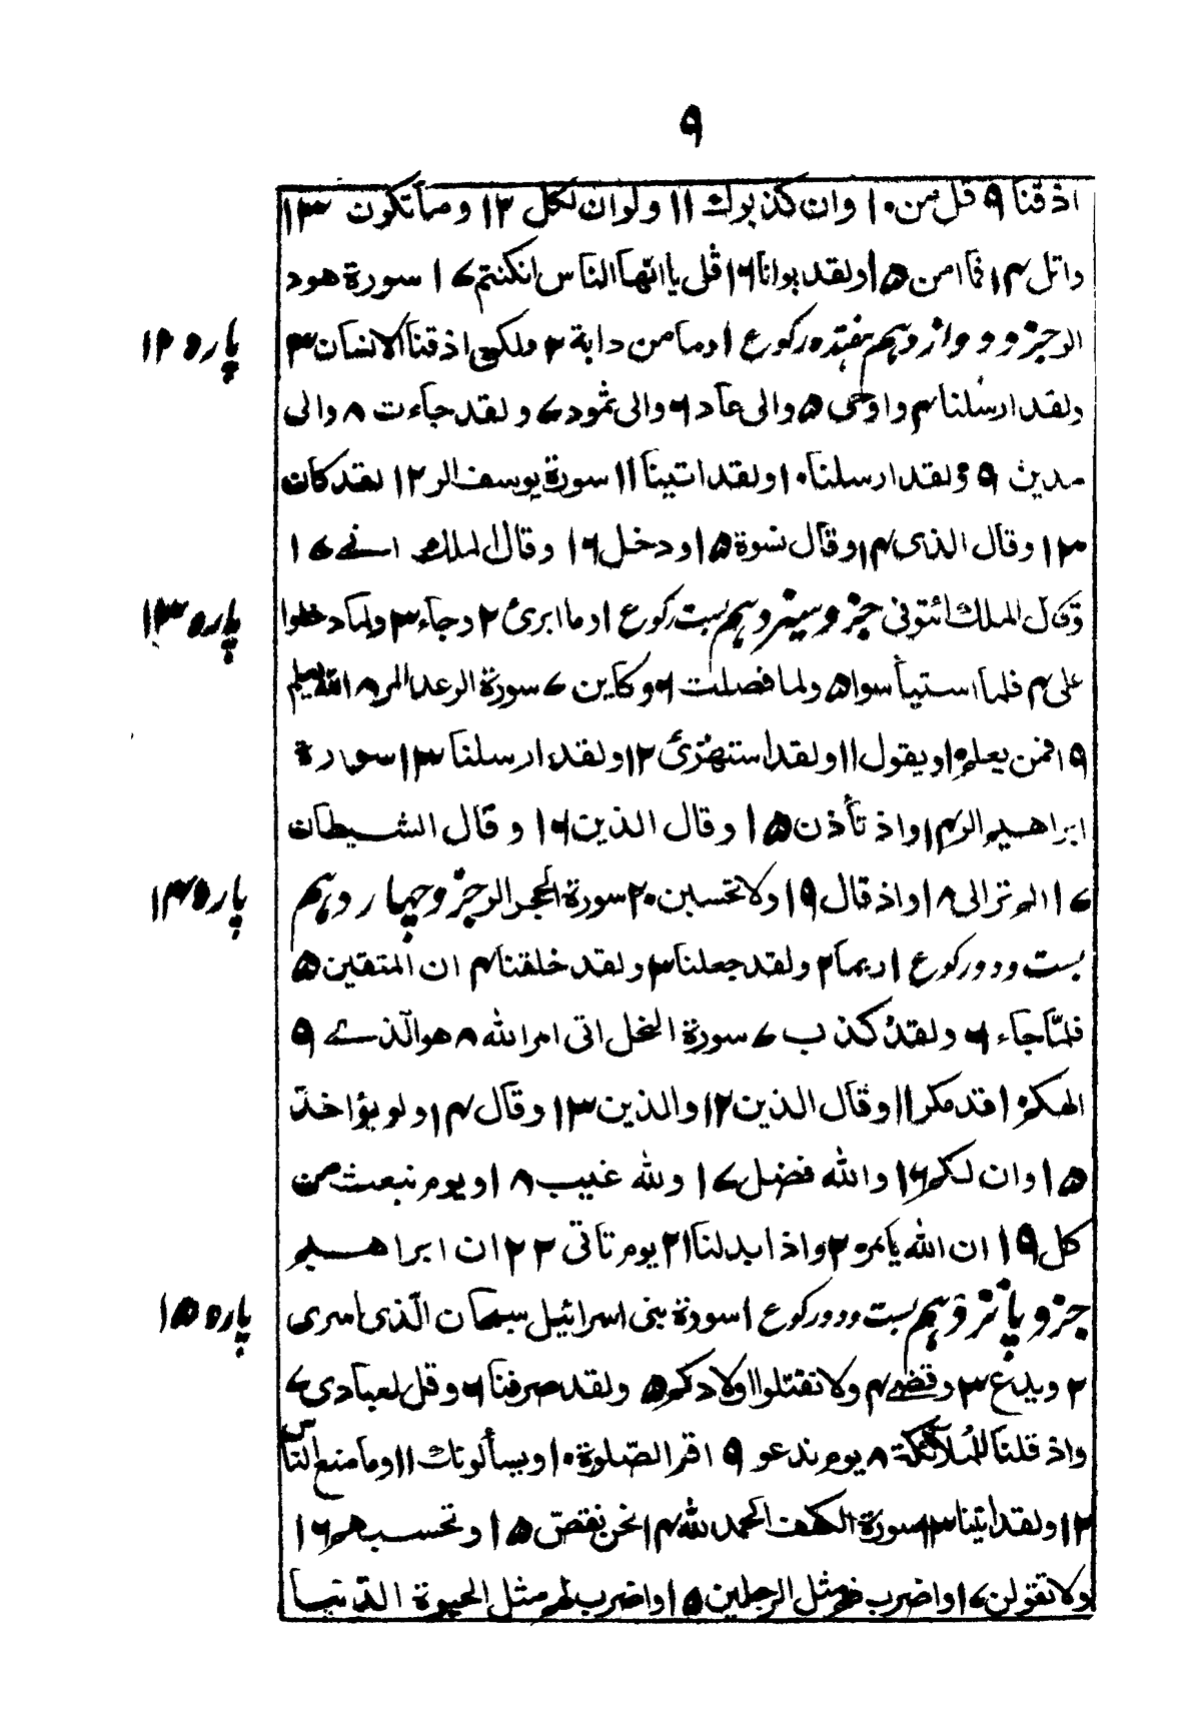 ۹
اذقنا ۹ قل من ۱۰ وان کذبوك ۱۱ ولوان لکل ۱۲ وماتکون ۱۳
واتل ۱۴ فماامن ۱۵ ولقد بوانا ۱۶ قل یاایهاالناس انکنتم ۱۷ سورة هود
الر جزو دوازدہم ہفتدہ رکوع ۱ ومامن دابة ۲ ولئن اذقناالانسان ۳
پارہ ۱۲
ولقد ارسلنا ۴ واوحی ۵ والی عاد ۶ والی ثمود ۷ ولقد جاءت ۸ والی
مدین ۹ ولقد ارسلنا ۱۰ ولقد اتینا ۱۱ سورة یوسف الر ۱۲ لقد کان
۱۳ وقال الذی ۱۴ وقال نسوة ۱۵ ودخل ۱۶ وقال الملك انے ۱۷
وقال الملك ائتونی جزو سیزدہم بست رکوع ۱ وماابرئ ۲ وجاء ۳ ولمادخلوا
پارہ ۱۳
علی ۴ فلما استیأسوا ۵ ولما فصلت ۶ وکاین ۷ سورة الرعد المر ۸ الله یعلم
۹ افمن یعلم ۱۰ ویقول ۱۱ ولقد استهزئ ۱۲ ولقد ارسلنا ۱۳ سورة
ابراهیم الر ۱۴ واذ تأذن ۱۵ وقال الذین ۱۶ وقال الشیطان
۱۷ الم ترالی ۱۸ واذقال ۱۹ ولاتحسبن ۲۰ سورة الحجر الر جزو چہاردہم
پارہ ۱۴
بست ودو رکوع ۱ ربما ۲ ولقد جعلنا ۳ ولقد خلقنا ۴ ان المتقین ۵
فلمّاجاء ۶ ولقد کذب ۷ سورة النحل اتی امرالله ۸ هوالّذے ۹
الهکم ۱۰ قد مکر ۱۱ وقال الذین ۱۲ والذین ۱۳ وقال ۱۴ ولو یؤاخذ
۱۵ وان لکم ۱۶ والله فضل ۱۷ ولله غیب ۱۸ ویوم نبعث من
کل ۱۹ ان الله یامر ۲۰ واذا بدلنا ۲۱ یوم تاتی ۲۲ ان ابراهیم
جزو پانزدہم بست ودو رکوع ۱ سورة بنی اسرائیل سبحان الّذی اسری
پارہ ۱۵
۲ ویدع ۳ وقضے ۴ ولاتقتلوا اولادکم ۵ ولقد صرفنا ۶ وقل لعبادی ۷
واذ قلنا للملائکة ۸ یوم ندعو ۹ اقم الصّلوة ۱۰ ویسألونك ۱۱ ومامنع الناس
۱۲ ولقد اتینا ۱۳ سورة الکهف الحمد لله ۱۴ نحن نقصّ ۱۵ وتحسبهم ۱۶
ولاتقولن ۱۷ واضرب لهم مثل الرجلین ۱۵ واضرب لهم مثل الحیوة الدّنیا